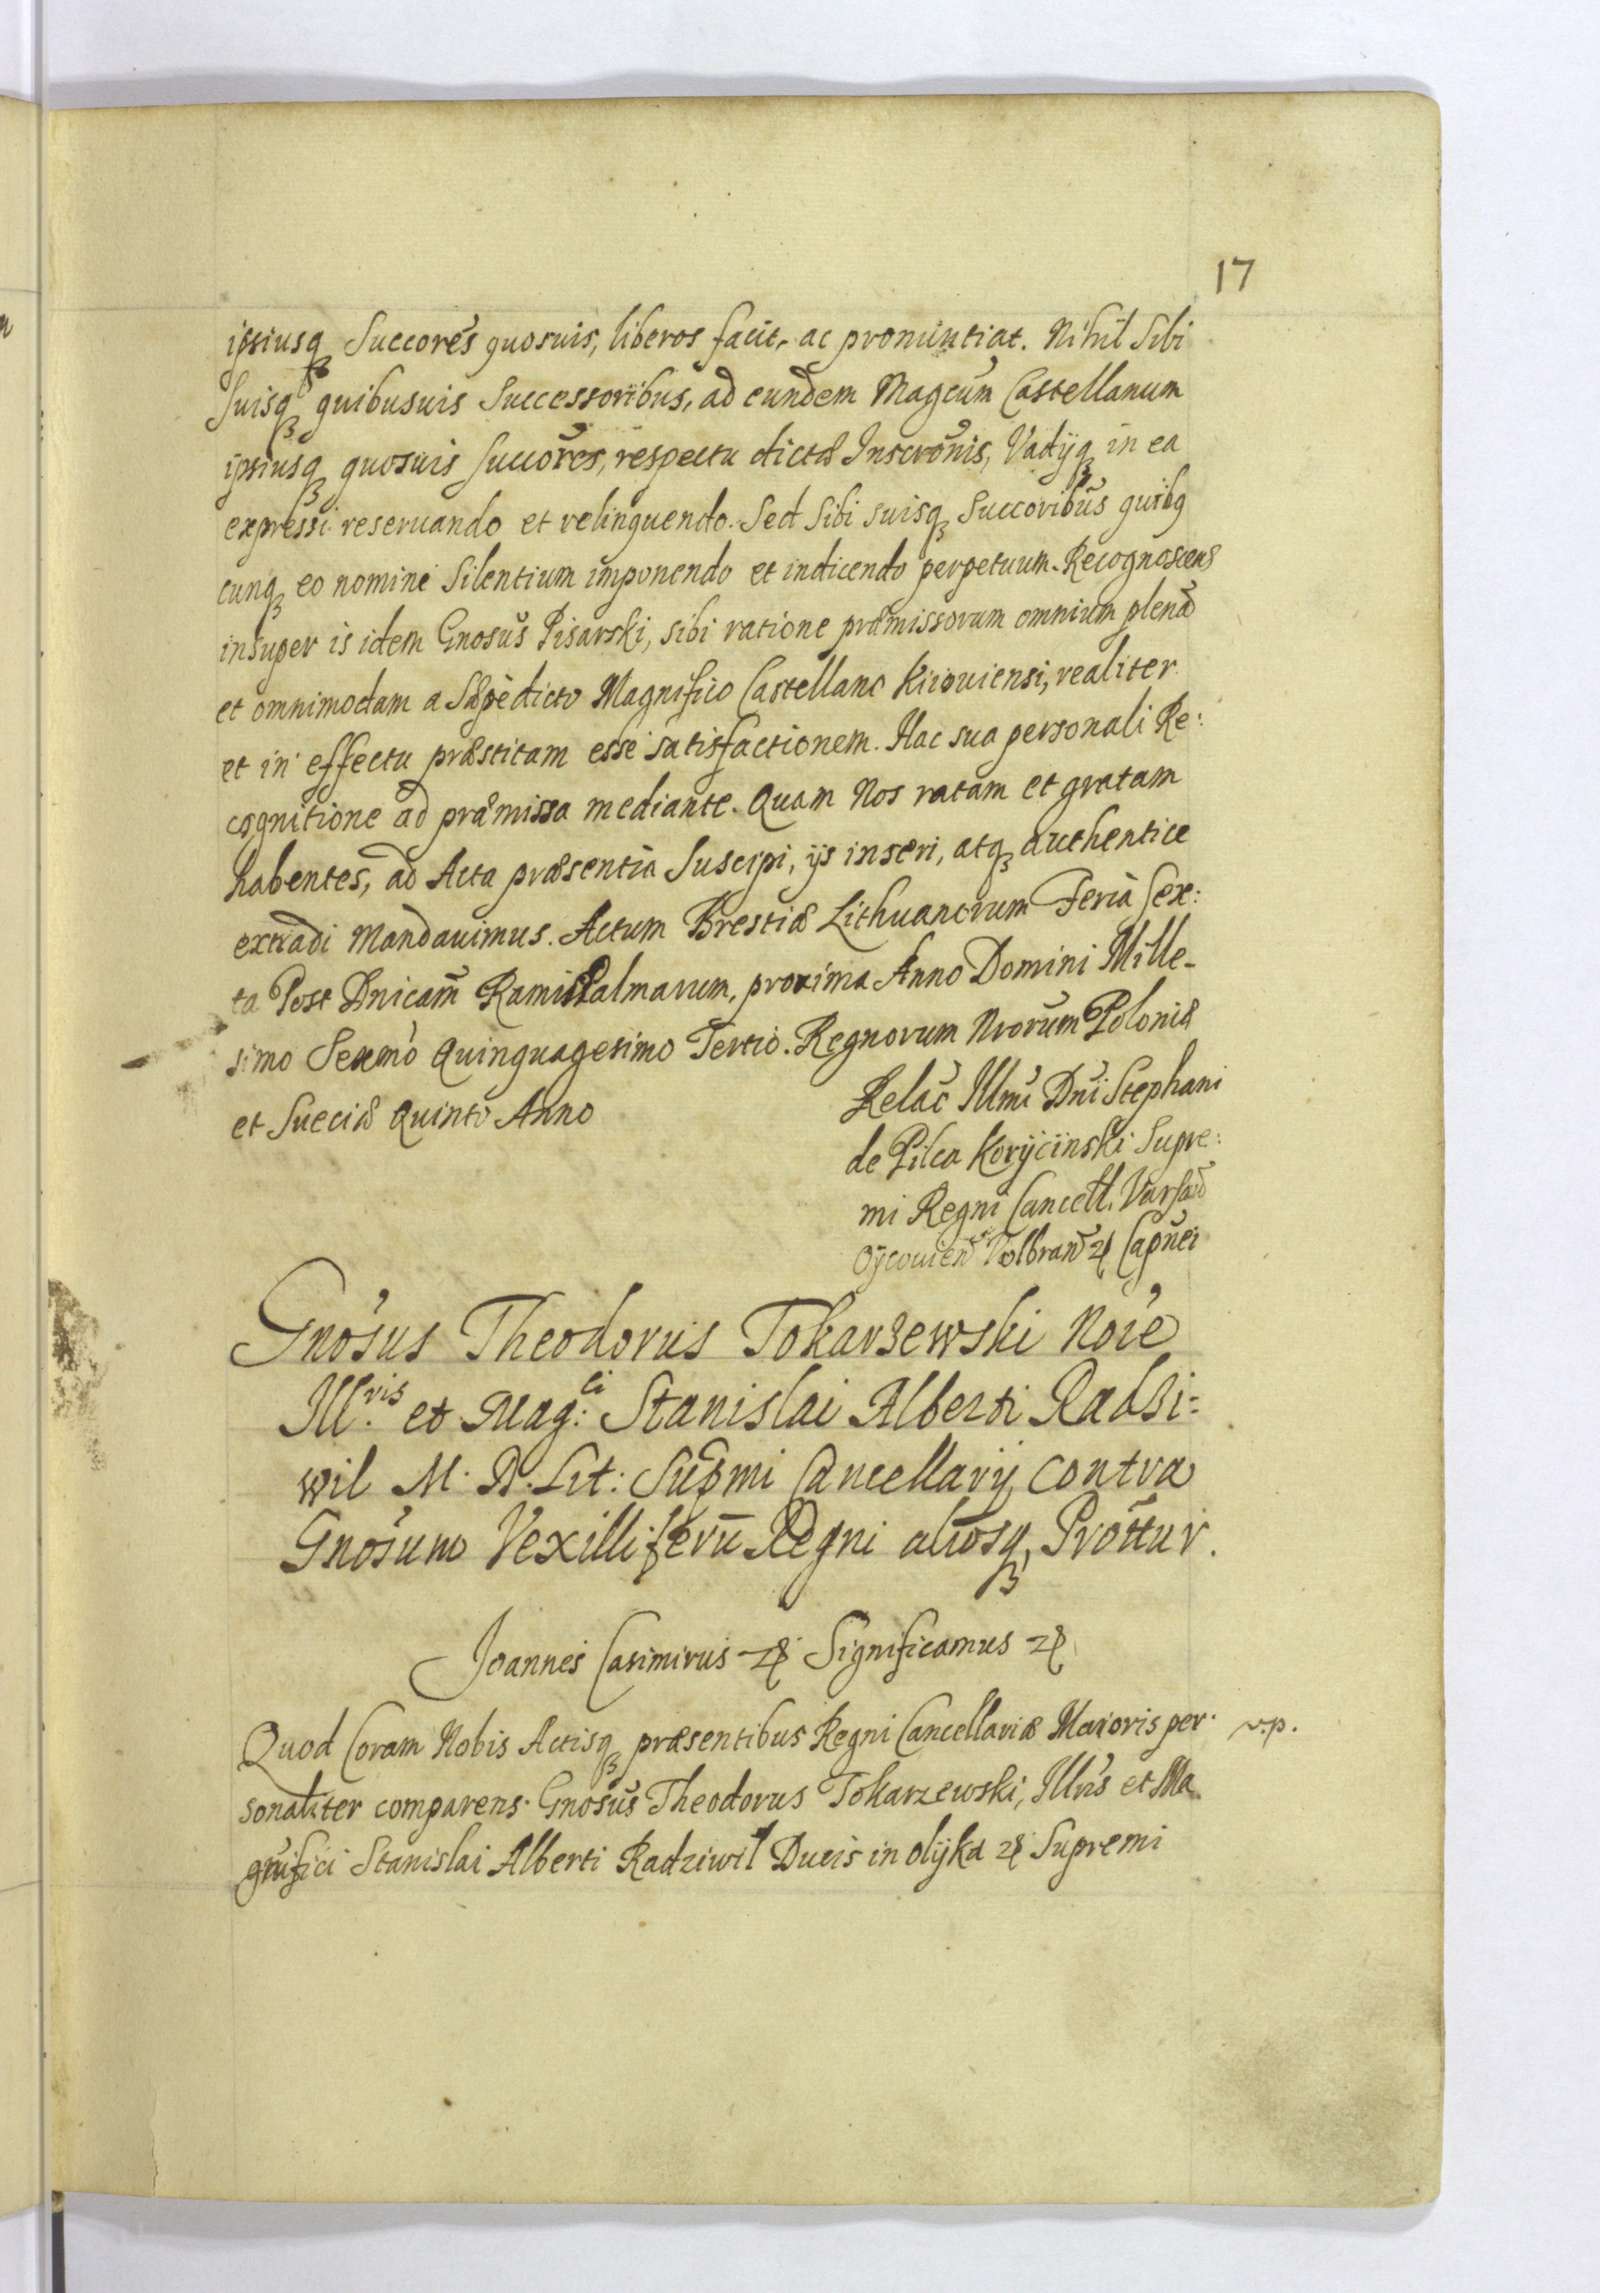 17
ipsiusq₃ Succorēs quosuis, liberos facit, ac pronuntiat. Nihil Sibi
Suisq₃ quibusuis Successoribus, ad eundem Magcum Castellanum
ipsiusq₃ quosuis succōres, respectu dictæ Inscrōnis, Vadijq₃ in ea
expressi reseruando et relinquendo. Sed Sibi suisq₃ Succoribūs quibq
cunq₃ eo nomine Silentium imponendo et indicendo perpetuum. Recognoscens
insuper is idem Gnosūs Pisarski, sibi ratione præmissorum omnium plenā
et omnimodam a Sæpèdicto Magnifico Castellano Kiiouiensi, realiter
et in effectu præstitam esse satisfactionem. Hac sua personali Re:
cognitione ad præmissa mediante. Quam Nos ratam et gratam
habentes, ad Acta præsentia Suscipi, ijs inseri, atq₃ authentice
extradi Mandauimus. Actum Brestiæ Lithuanorum Feria Sex:
ta Post Dnicam̄ RamisPalmarum, proxima Anno Domini Mille-
simo Sexmō Quinquagesimo Tertio. Regnorum Nrorūm Poloniæ
et Sueciæ Quinto Anno
Relac̄ Illmi Dni Stephani
de Pilca Koryciinski Supre:
mi Regni Cancell. Varsau
Oycouien Volbran ꝛc Capnei
Gnosus Theodorus Tokarzewski Noie
Ill.ris et Mag:ci Stanislai Alberti Radzi=
wil M. D. Lit: Supmi Cancellarij contra
Gnosum Vexilliferū Regni aliosq₃ Prottur.
Joannes Casimirus ꝛc Significamus ꝛc
Quod Coram Nobis Actisq₃ præsentibus Regni Cancellariæ Maioris per- v.p.
sonaliter comparens. Gnosūs Theodorus Tokarzewski, Illris et Ma
gnifici Stanislai Alberti Radziwil Ducis in Olyka ꝛc Supremi